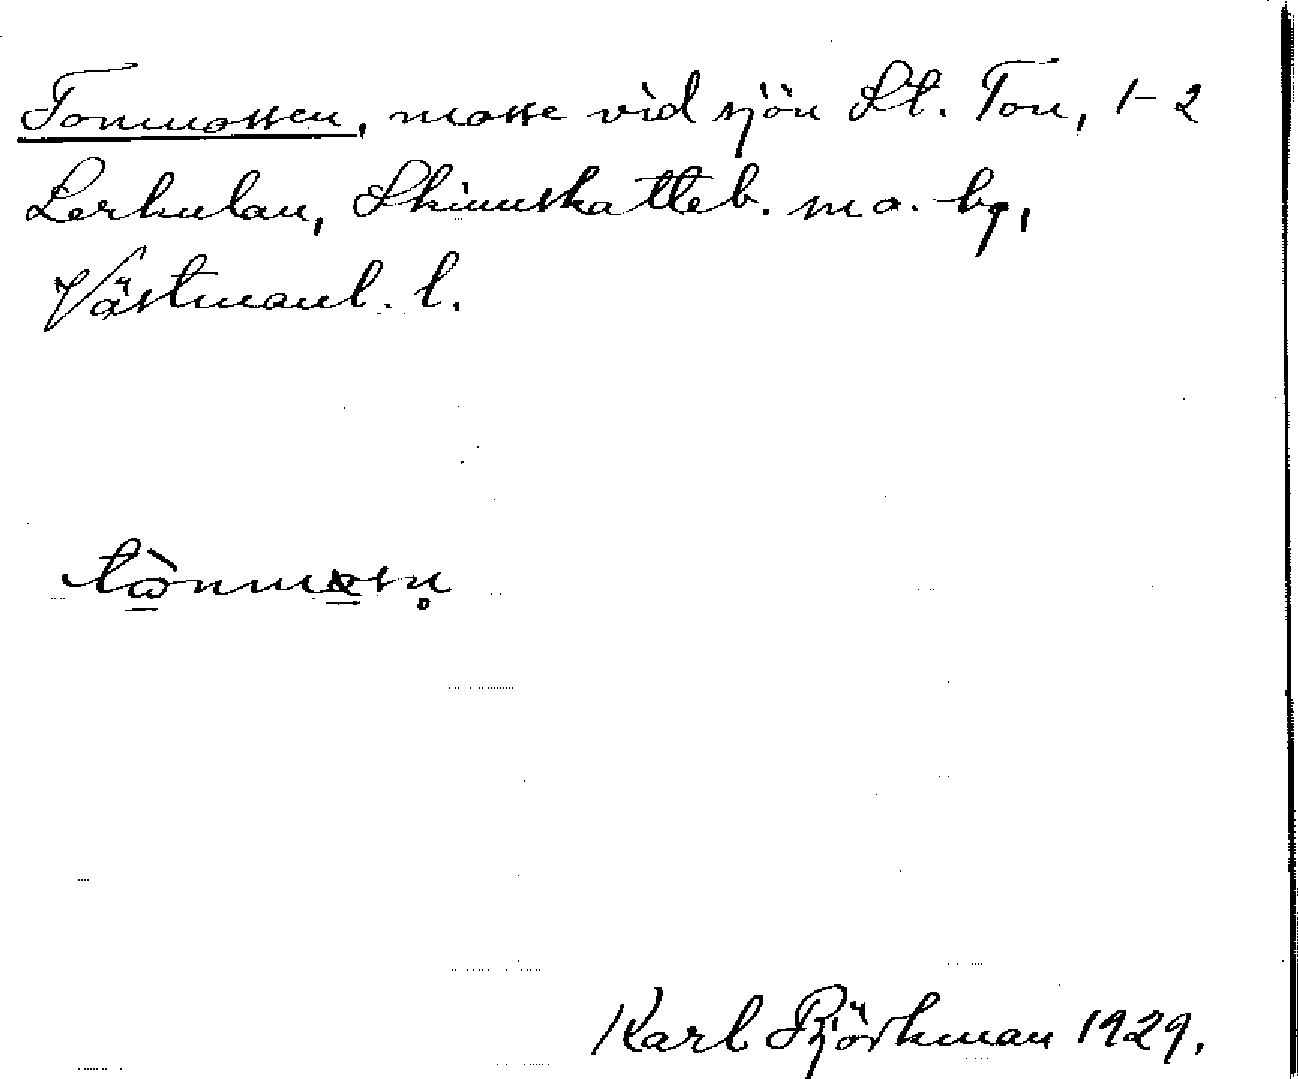 Tonmossen, mosse vid sjön St. Ton, 1-2
Lerkulan, Skinnskatteb. sn o. bg,
Västmanl. l.
tònmosn̥
Karl Björkman 1929.